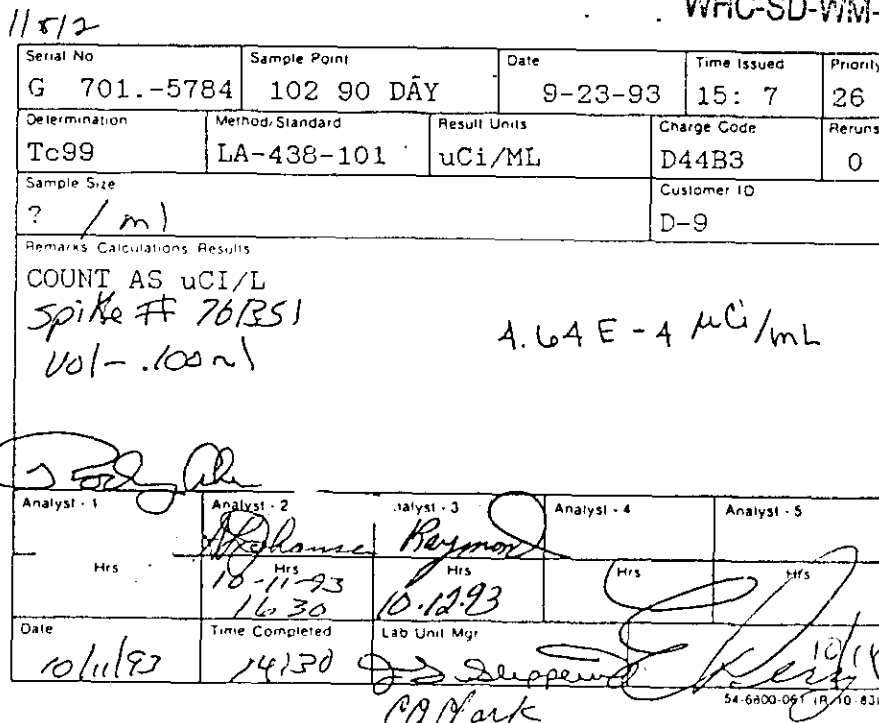 WHC-SD-WM-
11812
Serial No Sample Point Date Time Issued Priority
G 701.-5784 102 90 DAY 9-23-93 15: 7 26
Determination Method/Standard Result Units Charge Code Reruns
Tc99 LA-438-101 uCi/ML D44B3 0
Sample Size Customer ID
? / ml D-9
Remarks Calculations Results
COUNT AS uCI/L
Spike # 76B51
Vol - .100 ml 4.64 E - 4 µCi/mL
Analyst - 1 Analyst - 2 alyst - 3 Analyst - 4 Analyst - 5
Raymond
Hrs Hrs Hrs Hrs Hrs
10-11-93 10.12.93
16 30
Date Time Completed Lab Unit Mgr
10/11/93 14:30
54-6800-061 (R 10-83)